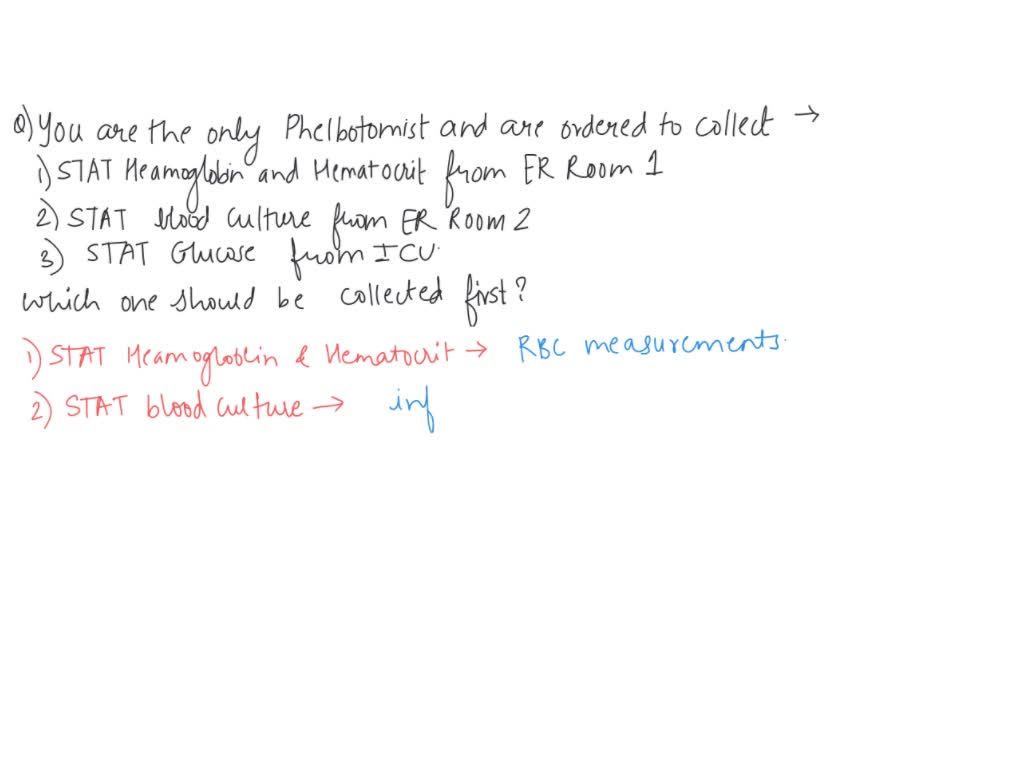 Q) You are the only Phelbotomist and are ordered to collect →
1) STAT Heamoglobin and Hematocrit from ER Room 1
2) STAT blood culture from ER Room 2
3) STAT Glucose from ICU.
which one should be collected first?
1) STAT Heamogloblin & Hematocrit → RBC measurements.
2) STAT blood culture → inf